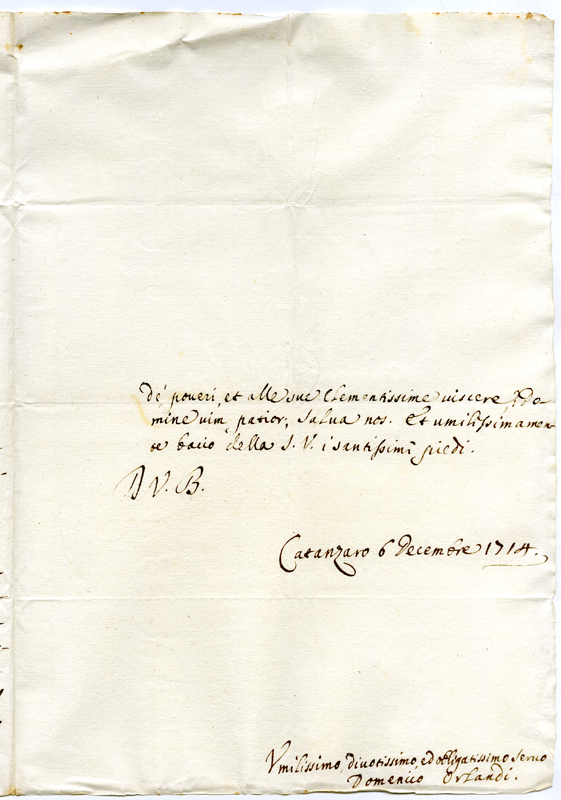 de' poveri, et alle sue Clementissime viscere, Do-
mine vim patior, salva nos. Et umilissimamen-
te bacio della S. V. i santissimi piedi.
D V. B.
Catanzaro 6 Decembre 1714.
Vmilissimo, divotissimo, ed obligatissimo servo
Domenico Orlandi.